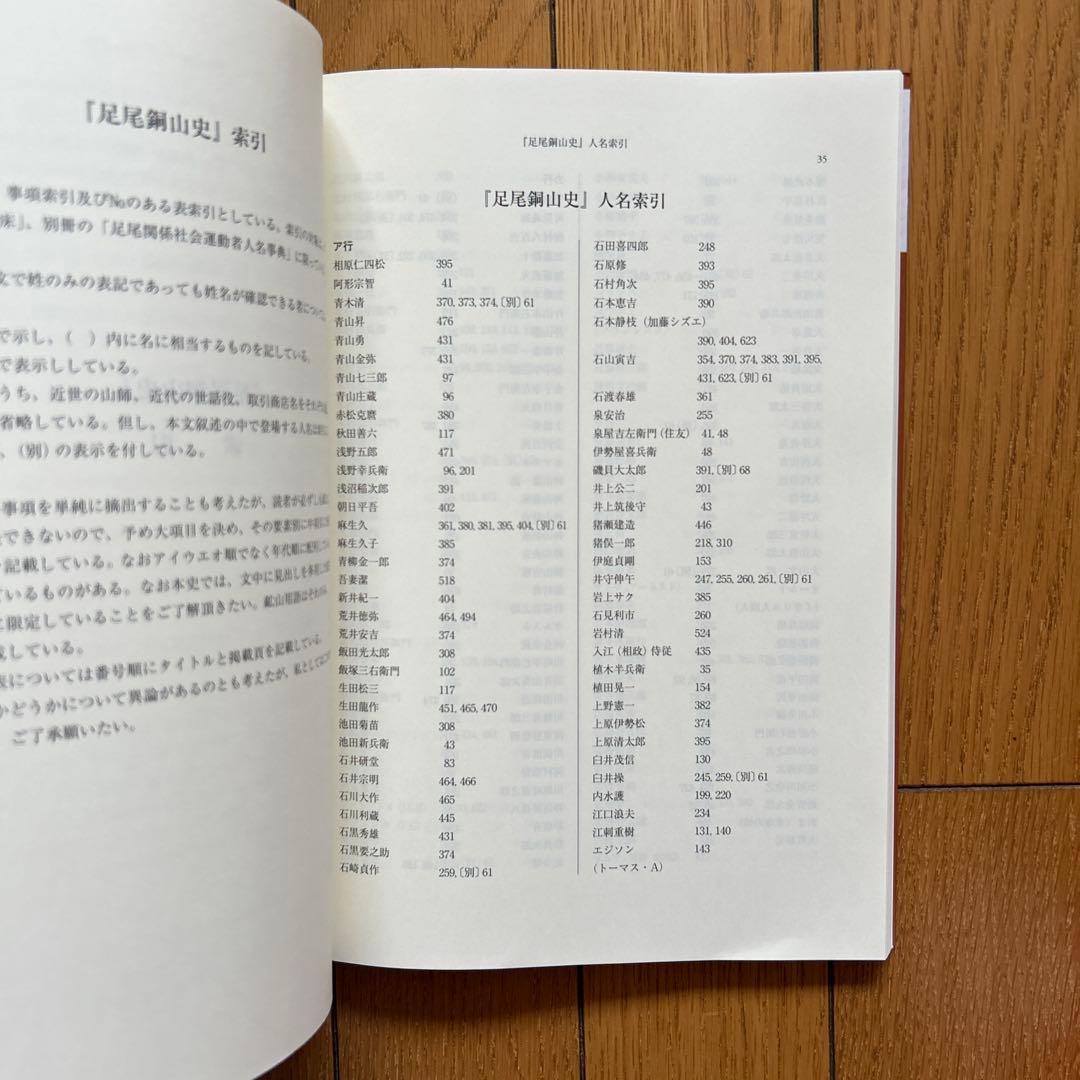 『足尾銅山史』索引
事項索引及び№のある表索引としている。索引の対象
床」、別冊の「足尾関係社会運動者人名事典」に限ってい
文で姓のみの表記であっても姓名が確認できる者については
で示し、( )内に名に相当するものを記している。
で表示ししている。
うち、近世の山師、近代の世話役、取引商店名を
省略している。但し、本文叙述の中で登場する人名は
、(別)の表示を付している。
事項を単純に摘出することも考えたが、読者が必ずし
できないので、予め大項目を決め、その要素別に中項
記載している。なおアイウエオ順でなく年代順に配列し
ているものがある。なお本史では、文中に見出しを多
に限定していることをご了解頂きたい。鉱山用語は
成している。
表については番号順にタイトルと掲載頁を記載している。
かどうかについて異論があるのとも考えたが、私として
ご了承願いたい。
『足尾銅山史』人名索引
35
『足尾銅山史』人名索引
ア行
相原仁四松 395
阿形宗智 41
青木清 370, 373, 374,〔別〕61
青山昇 476
青山勇 431
青山金弥 431
青山七三郎 97
青山庄蔵 96
赤松克麿 380
秋田善六 117
浅野五郎 471
浅野幸兵衛 96, 201
浅沼稲次郎 391
朝日平吾 402
麻生久 361, 380, 381, 395, 404,〔別〕61
麻生久子 385
青柳金一郎 374
吾妻潔 518
新井紀一 404
荒井徳弥 464, 494
荒井安吉 374
飯田光太郎 308
飯塚三右衛門 102
生田松三 117
生田龍作 451, 465, 470
池田菊苗 308
池田新兵衛 43
石井研堂 83
石井宗明 464, 466
石川大作 465
石川利蔵 445
石黒秀雄 431
石黒要之助 374
石崎貞作 259,〔別〕61
石田喜四郎 248
石原修 393
石村角次 395
石本恵吉 390
石本静枝(加藤シズエ)
390, 404, 623
石山寅吉 354, 370, 374, 383, 391, 395,
431, 623,〔別〕61
石渡春雄 361
泉安治 255
泉屋吉左衛門(住友) 41, 48
伊勢屋喜兵衛 48
磯貝大太郎 391,〔別〕68
井上公二 201
井上筑後守 43
猪瀬建造 446
猪俣一郎 218, 310
伊庭貞剛 153
井守伸午 247, 255, 260, 261,〔別〕61
岩上サク 385
石見利市 260
岩村清 524
入江(相政)侍従 435
植木半兵衛 35
植田晃一 154
上野憲一 382
上原伊勢松 374
上原清太郎 395
臼井茂信 130
臼井操 245, 259,〔別〕61
内水護 199, 220
江口浪夫 234
江刺重樹 131, 140
エジソン 143
(トーマス・A)